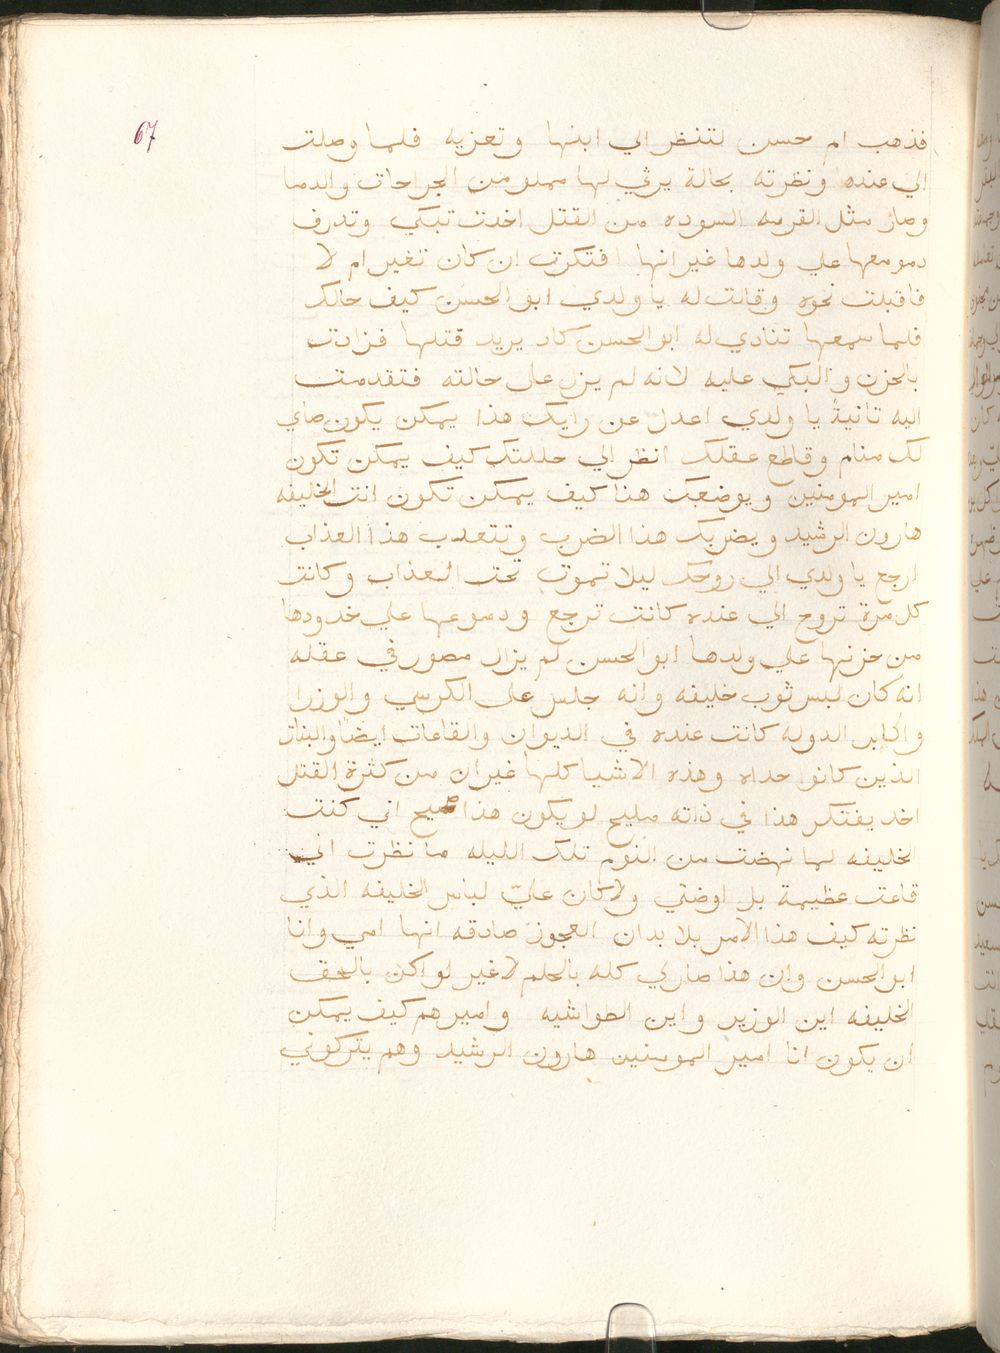 67
فذهب ام حسن لتنظر الي ابنها وتعزيه فلما وصلت
الي عنده ونظرته بحالة يرثي لها مملو من الجراحات والدما
وصار مثل القرمه السوده من القتل اخدت تبكي وتدرف
دمومعها علي ولدها غير انها افتكرت ان كان تغير ام لا
فاقبلت نحوه وقالت له يا ولدي ابو الحسن كيف حالك
فلما سمعها تنادي له ابو الحسن كاد يريد قتلها فزادت
بالحزن والبكي عليه لانه لم يزل على حالته فتقدمت
اليه تانيةً يا ولدي اعدل عن رايك هذا يمكن يكون صاي
لك منام وقاطع عقلك انظر الي حللتك كيف يمكن تكون
امير المومنين ويوضعك هنا كيف يمكن تكون انت الخليفه
هارون الرشيد ويضربك هذا الضرب وتتعدب هذا العذاب
ارجع يا ولدي الي روحك ليلا تموت تحت العذاب وكانت
كل مرة تروح الي عنده كانت ترجع ودموعها علي خدودها
من حزنها علي ولدها ابو الحسن لم يزال مصور في عقله
انه كان لبس ثوب خليفه وانه جلس على الكرسي والوزرا
واكابر الدوله كانت عنده في الديوان والقاعات ايضاً والبنات
الذين كانوا حداه وهذه الاشيا كلها غير ان من كثرة القتل
اخد يفتكر هذا في ذاته مليح لو يكون هذا صحيح اني كنت
الخليفه لما نهضت من النوم تلك الليله ما نظرت اني
قاعت عظيمة بل اوضتي ولا كان عليّ لباس الخليفه الذي
نظرته كيف هذا الامر بلا بد ان العجوز صادقه انها امي وانا
ابو الحسن وان هذا صاري كله بالحلم لا غير لو اكن بالحق
الخليفه اين الوزير واين الطواشيه واميرهم كيف يمكن
ان يكون انا امير المومنين هارون الرشيد وهم يتركوني